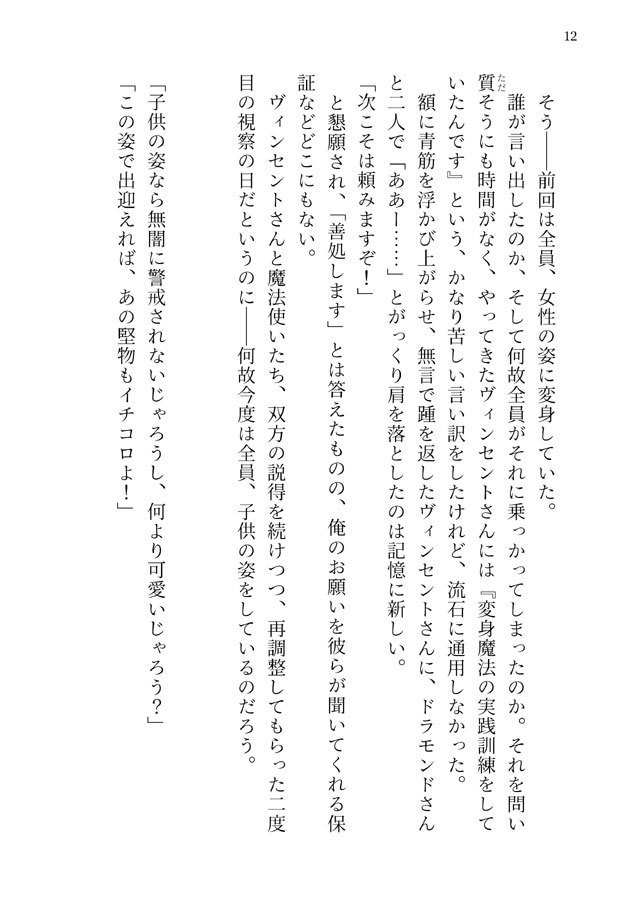 12
そう――前回は全員、女性の姿に変身していた。
誰が言い出したのか、そして何故全員がそれに乗っかってしまったのか。それを問い
質そうにも時間がなく、やってきたヴィンセントさんには『変身魔法の実践訓練をして
ただ
いたんです』という、かなり苦しい言い訳をしたけれど、流石に通用しなかった。
額に青筋を浮かび上がらせ、無言で踵を返したヴィンセントさんに、ドラモンドさん
と二人で「ああー……」とがっくり肩を落としたのは記憶に新しい。
「次こそは頼みますぞ！」
と懇願され、「善処します」とは答えたものの、俺のお願いを彼らが聞いてくれる保
証などどこにもない。
ヴィンセントさんと魔法使いたち、双方の説得を続けつつ、再調整してもらった二度
目の視察の日だというのに――何故今度は全員、子供の姿をしているのだろう。
「子供の姿なら無闇に警戒されないじゃろうし、何より可愛いじゃろう？」
「この姿で出迎えれば、あの堅物もイチコロよ！」